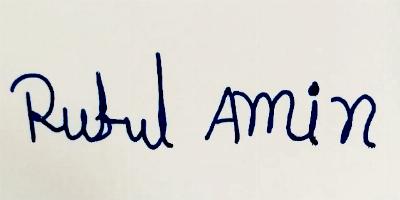 Rubul Amin